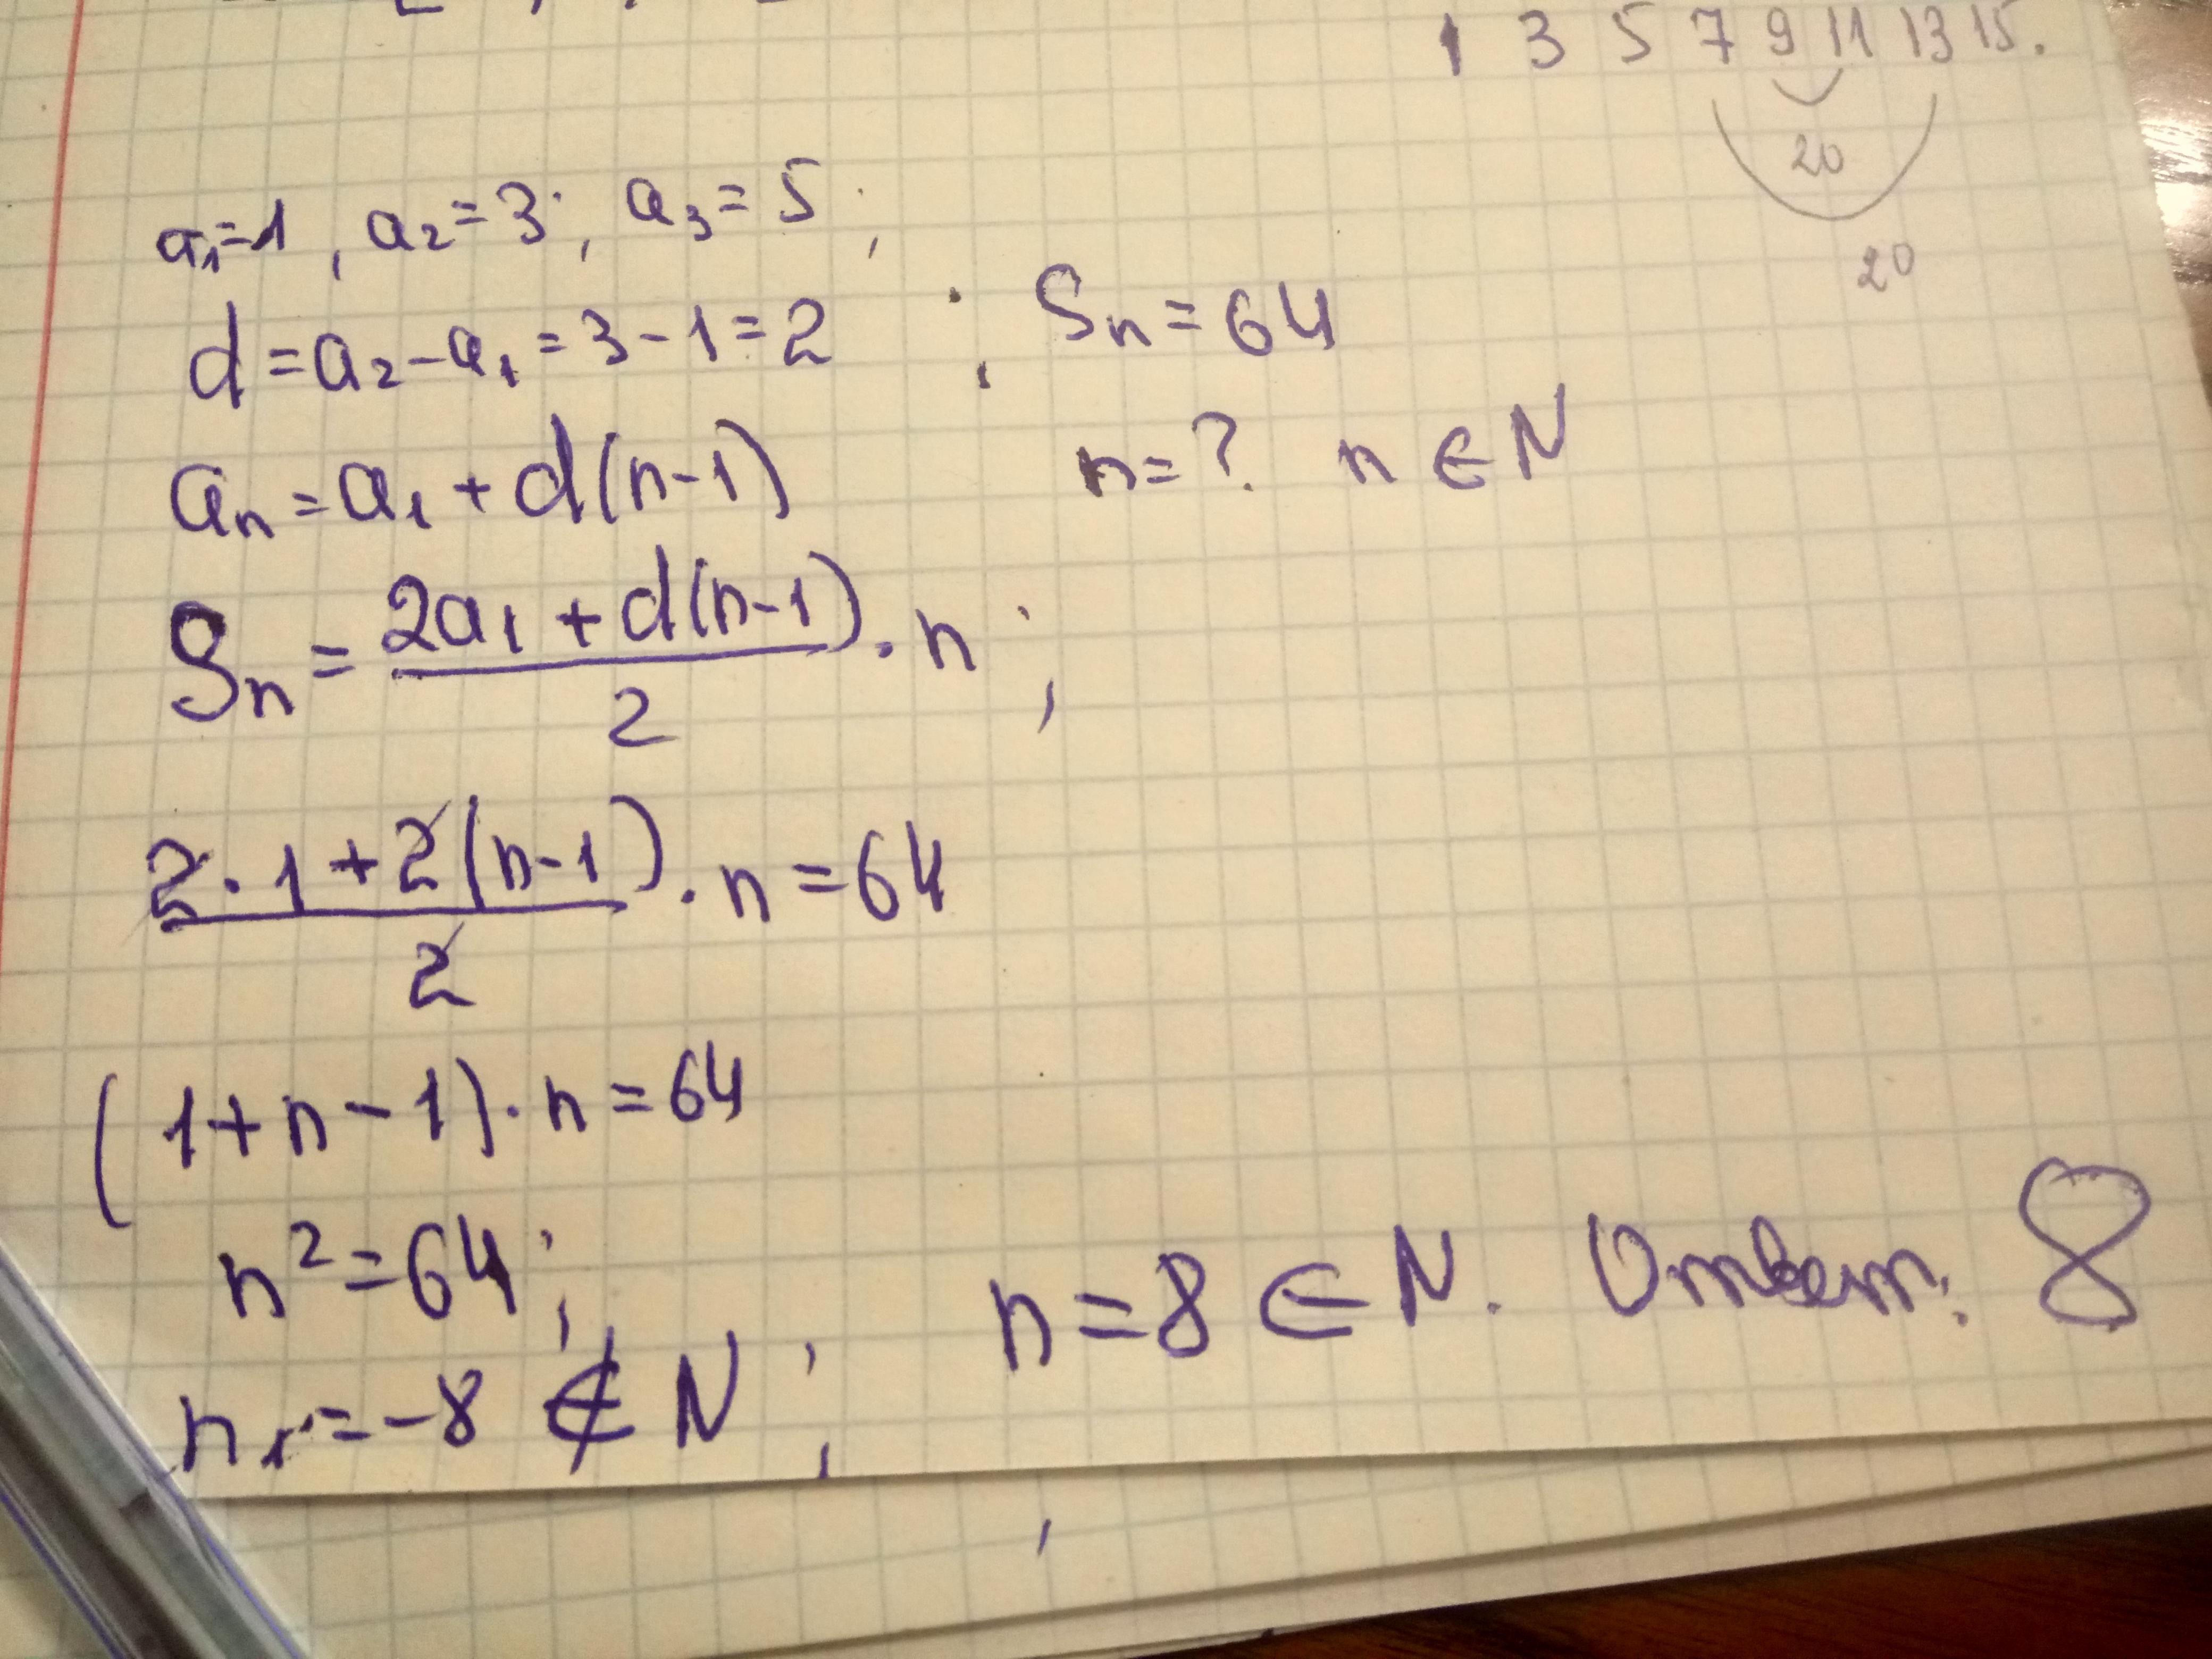 1 3 5 7 9 11 13 15.
20
20
a₁=1, a₂=3; a₃=5;
d=a₂-a₁=3-1=2; Sₙ=64
aₙ=a₁+d(n-1) n=? n∈N
Sₙ=(2a₁+d(n-1))/2·n;
(2·1+2(n-1))/2·n=64
(1+n-1)·n=64
n²=64;
n₁=-8∉N; n=8∈N. Ответ: 8